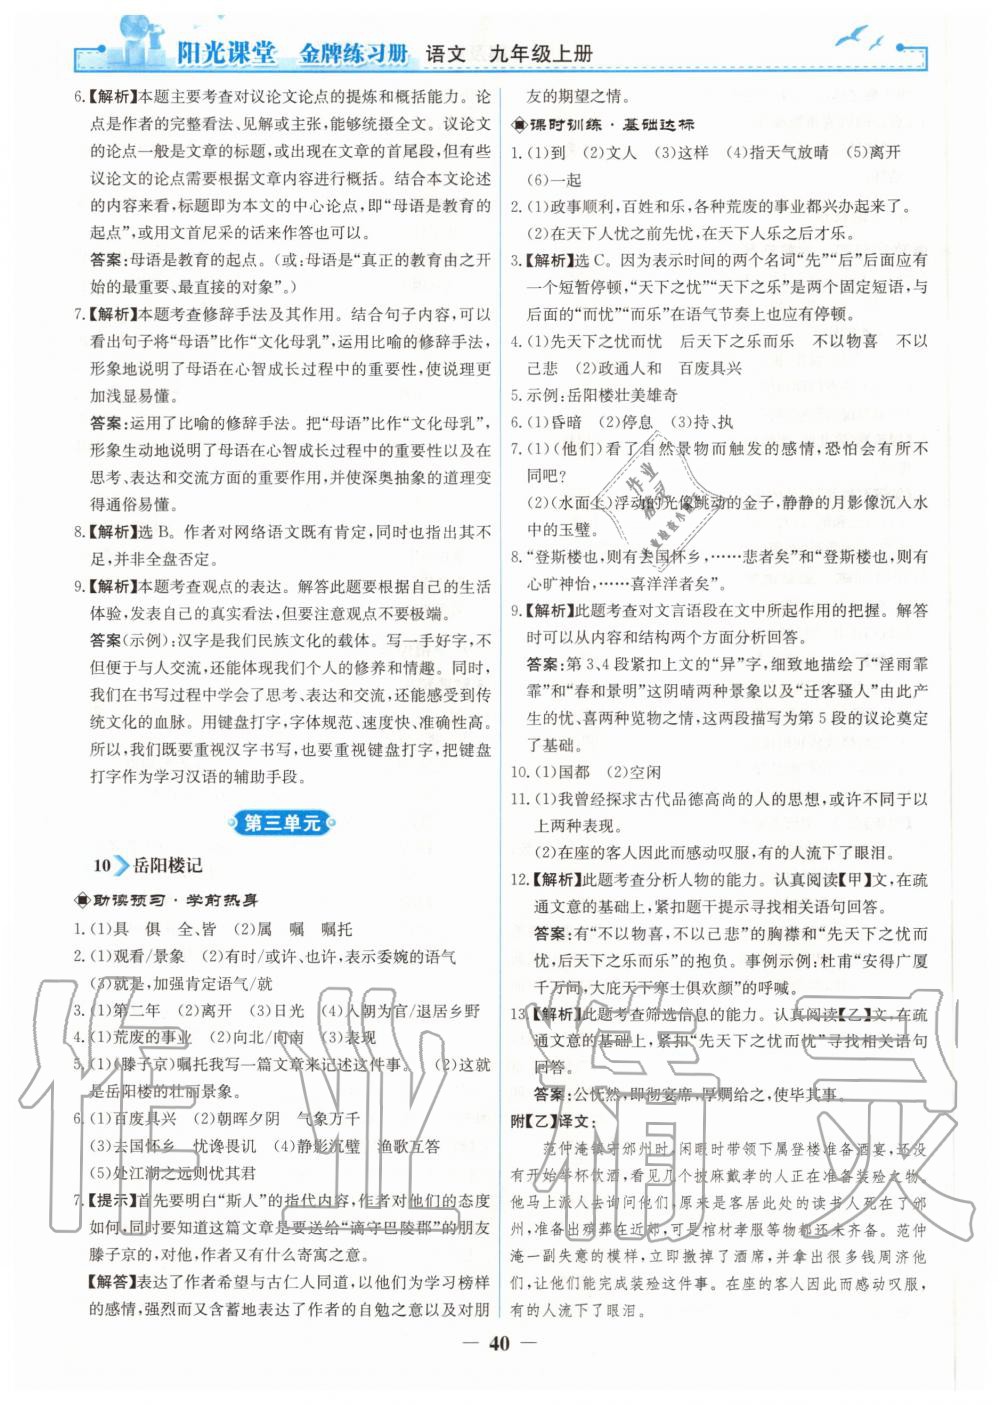 阳光课堂 金牌练习册 语文 九年级上册
6.【解析】本题主要考查对议论文论点的提炼和概括能力。论
点是作者的完整看法、见解或主张,能够统摄全文。议论文
的论点一般是文章的标题,或出现在文章的首尾段,但有些
议论文的论点需要根据文章内容进行概括。结合本文论述
的内容来看,标题即为本文的中心论点,即“母语是教育的
起点”,或用文首尼采的话来作答也可以。
答案:母语是教育的起点。(或:母语是“真正的教育由之开
始的最重要、最直接的对象”。)
7.【解析】本题考查修辞手法及其作用。结合句子内容,可以
看出句子将“母语”比作“文化母乳”,运用比喻的修辞手法,
形象地说明了母语在心智成长过程中的重要性,使其更
加浅显易懂。
答案:运用了比喻的修辞手法。把“母语”比作“文化母乳”,
形象生动地说明了母语在心智成长过程中的重要性以及在
思考、表达和交流方面的重要作用,并使深奥抽象的道理变
得通俗易懂。
8.【解析】选 B。作者对网络语文既有肯定,同时也指出其不
足,并非全盘否定。
9.【解析】本题考查观点的表达。解答此题要根据自己的生活
体验,发表自己的真实看法,但要注意观点不要极端。
答案(示例):汉字是我们民族文化的载体。写一手好字,不
但便于与人交流,还能体现我们个人的修养和情趣。同时,
我们在书写过程中学会了思考、表达和交流,还能感受到传
统文化的血脉。用键盘打字,字体规范、速度快、准确性高。
所以,我们既要重视汉字书写,也要重视键盘打字,把键盘
打字作为学习汉语的辅助手段。
第三单元
10 岳阳楼记
助读预习·学前热身
1.(1)具 俱 全、皆 (2)属 嘱 嘱托
2.(1)观看/景象 (2)有时/或许、也许,表示委婉的语气
(3)就是,加强肯定语气/就
3.(1)第二年 (2)离开 (3)日光 (4)入朝为官/退居乡野
4.(1)荒废的事业 (2)向北/向南 (3)表现
5.(1)(滕子京)嘱托我写一篇文章来记述这件事。 (2)这就
是岳阳楼的壮丽景象。
6.(1)百废具兴 (2)朝晖夕阴 气象万千
(3)去国怀乡 忧谗畏讥 (4)静影沉璧 渔歌互答
(5)处江湖之远则忧其君
7.【提示】首先要明白“斯人”的指代内容,作者对他们的态度
如何,同时要知道这篇文章是要送给“谪守巴陵郡”的朋友
滕子京的,对他,作者又有什么寄寓之意。
【解答】表达了作者希望与古仁人同道,以他们为学习榜样
的感情,强烈而又含蓄地表达了作者的自勉之意以及对朋
友的期望之情。
课时训练·基础达标
1.(1)到 (2)文人 (3)这样 (4)指天气放晴 (5)离开
(6)一起
2.(1)政事顺利,百姓和乐,各种荒废的事业都兴办起来了。
(2)在天下人忧之前先忧,在天下人乐之后才乐。
3.【解析】选 C。因为表示时间的两个名词“先”“后”后面应有
一个短暂停顿,“天下之忧”“天下之乐”是两个固定短语,与
后面的“而忧”“而乐”在语气节奏上也应有停顿。
4.(1)先天下之忧而忧 后天下之乐而乐 不以物喜 不以
己悲 (2)政通人和 百废具兴
5. 示例:岳阳楼壮美雄奇
6.(1)昏暗 (2)停息 (3)持、执
7.(1)(他们)看了自然景物而触发的感情,恐怕会有所不
同吧?
(2)(水面上)浮动的光像跳动的金子,静静的月影像沉入水
中的玉璧。
8.“登斯楼也,则有去国怀乡,……悲者矣”和“登斯楼也,则有
心旷神怡,……喜洋洋者矣”。
9.【解析】此题考查对文言语段在文中所起作用的把握。解答
时可以从内容和结构两个方面分析回答。
答案:第 3、4 段紧扣上文的“异”字,细致地描绘了“淫雨霏
霏”和“春和景明”这阴晴两种景象以及“迁客骚人”由此产
生的忧、喜两种览物之情,这两段描写为第 5 段的议论奠定
了基础。
10.(1)国都 (2)空闲
11.(1)我曾经探求古代品德高尚的人的思想,或许不同于以
上两种表现。
(2)在座的客人因此而感动叹服,有的人流下了眼泪。
12.【解析】此题考查分析人物的能力。认真阅读【甲】文,在疏
通文意的基础上,紧扣题干提示寻找相关语句回答。
答案:有“不以物喜,不以己悲”的胸襟和“先天下之忧而
忧,后天下之乐而乐”的抱负。事例示例:杜甫“安得广厦
千万间,大庇天下寒士俱欢颜”的呼喊。
13.【解析】此题考查筛选信息的能力。认真阅读【乙】文,在疏
通文意的基础上,紧扣“先天下之忧而忧”寻找相关语句
回答。
答案:公怃然,即彻宴席,厚赒给之,使毕其事。
附【乙】译文:
范仲淹镇守邠州时,闲暇时带领下属登楼准备酒宴,还没
有开始举杯饮酒,看见几个披麻戴孝的人正在准备装殓之物。
他马上派人去询问他们,原来是客居此处的读书人死在了邠
州,准备出殡葬在近郊,可是棺材孝服等物都还未齐备。范仲
淹一副失意的模样,立即撤掉了酒席,并拿出很多钱周济他
们,让他们能完成装殓这件事。在座的客人因此而感动叹服,
有的人流下了眼泪。
40
作业精灵